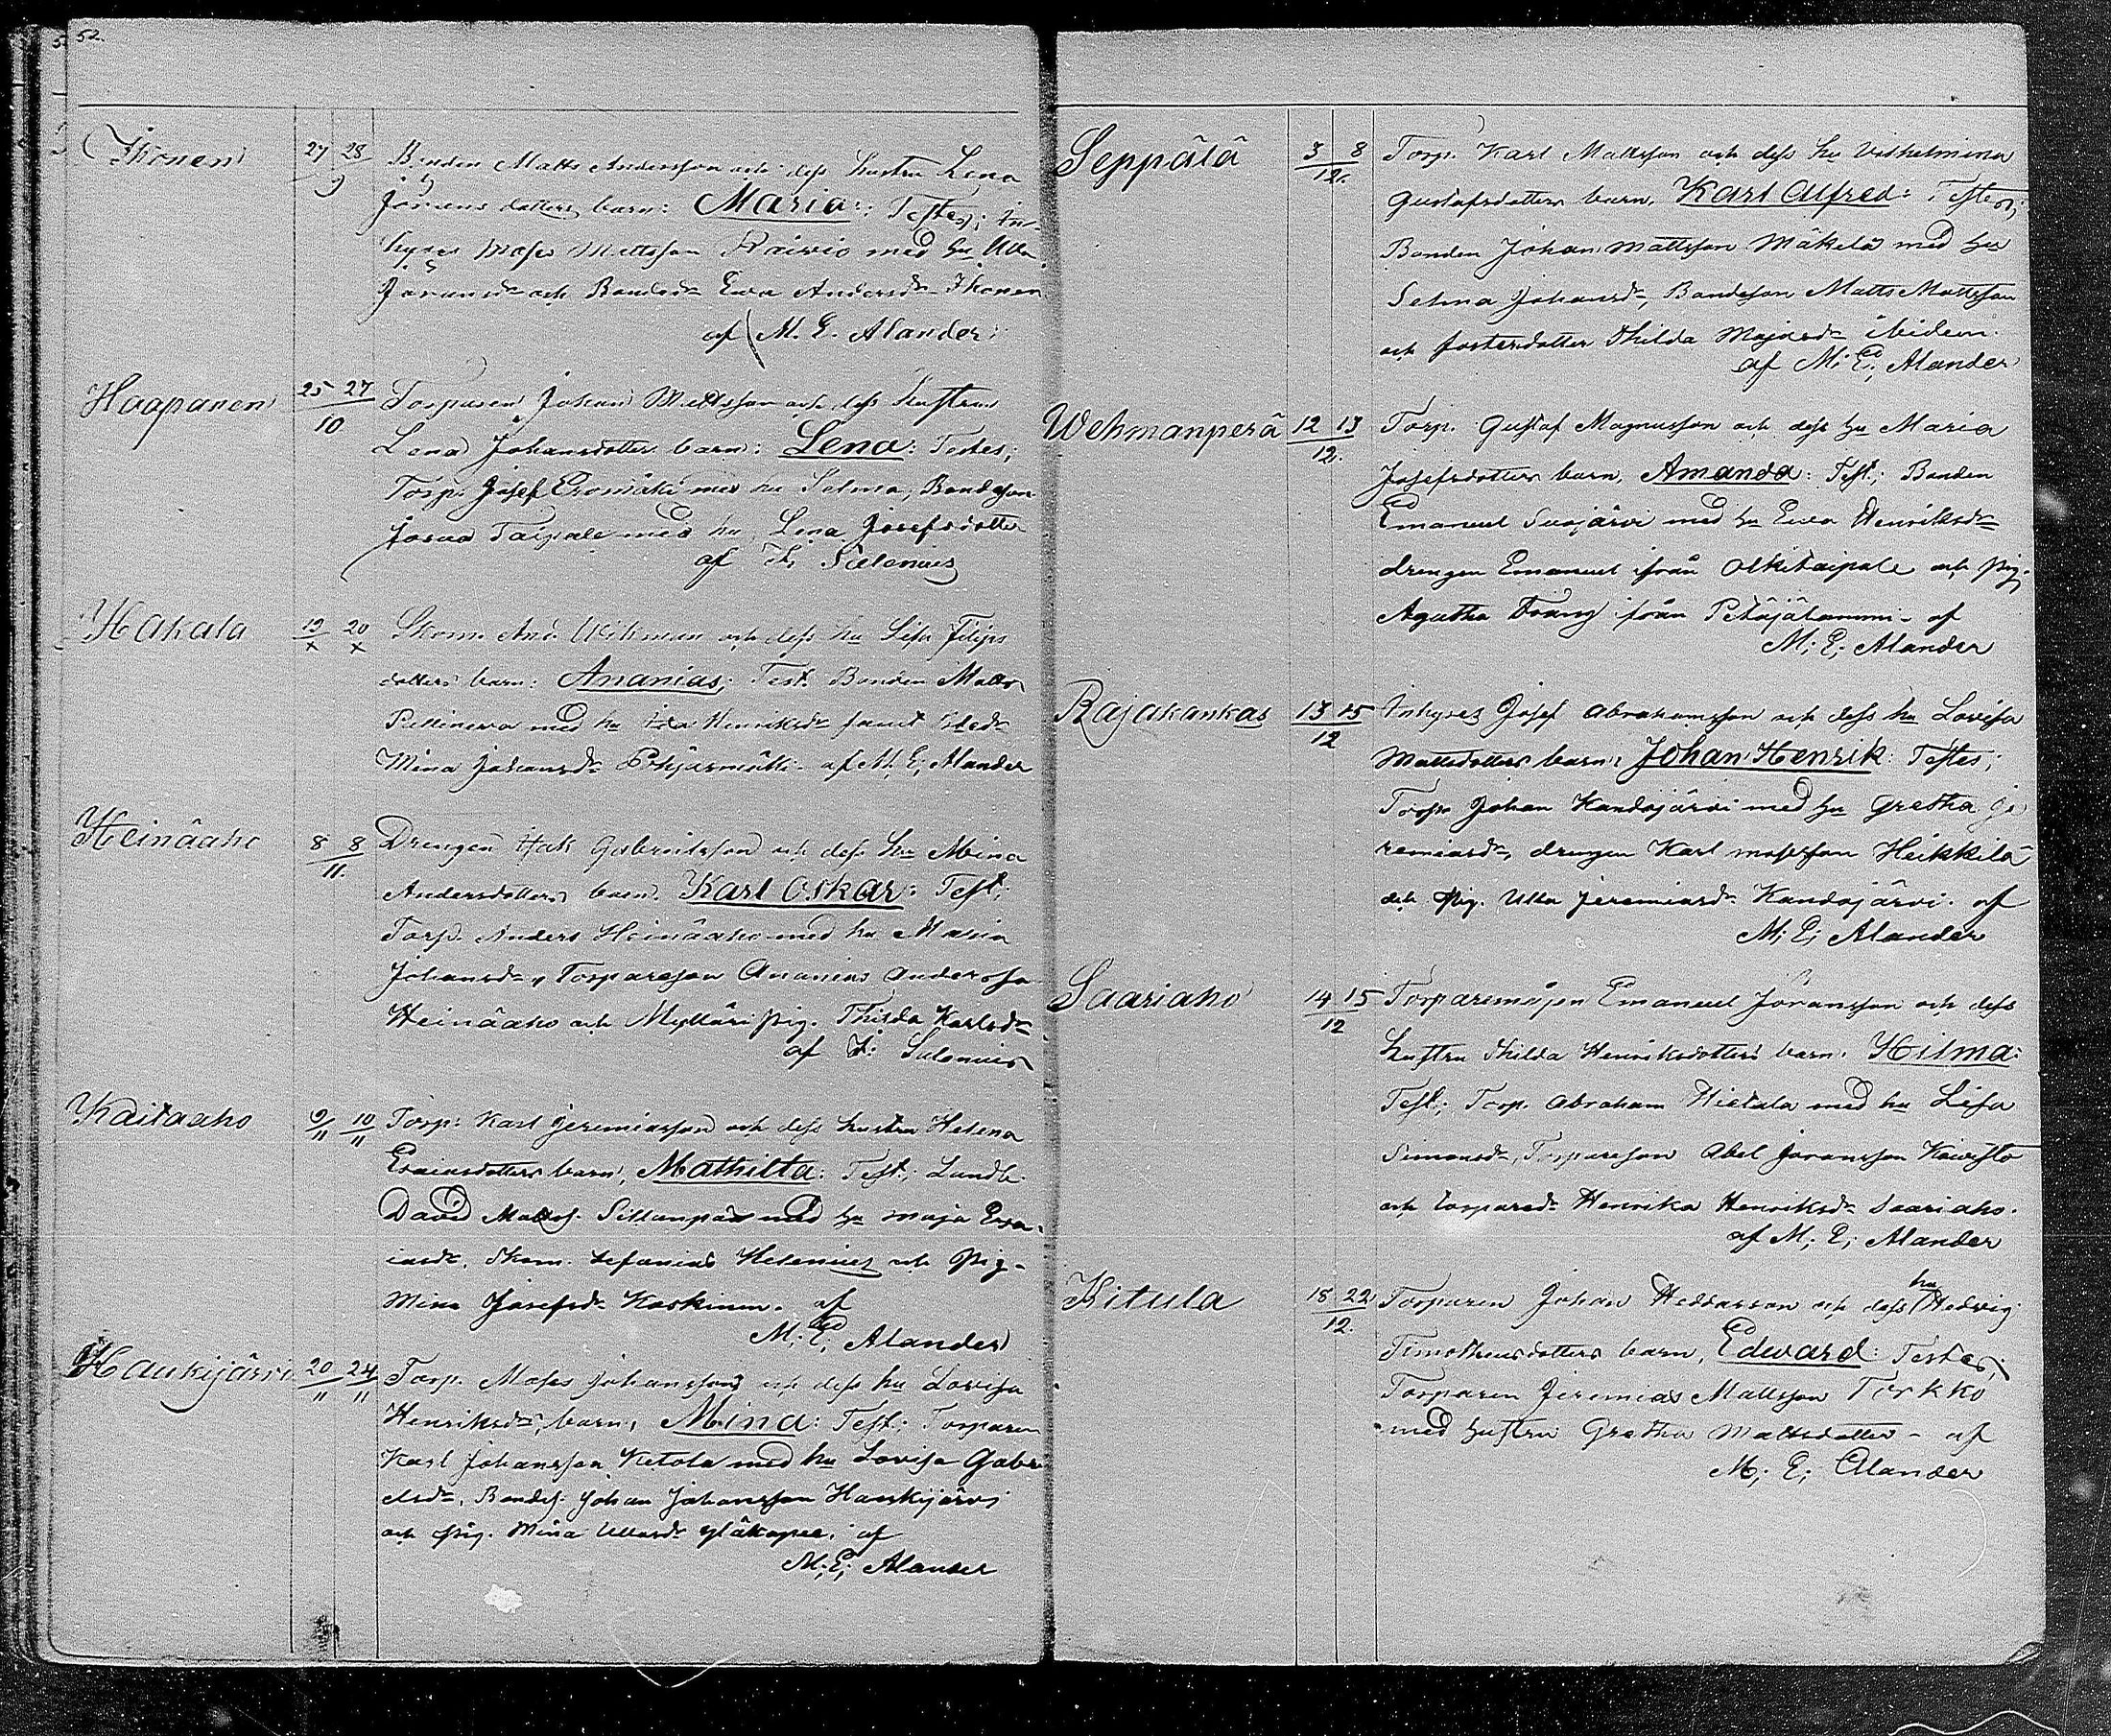 52.
Ikonen 27 28 Bonden Matts Andersson och dess hustru Lena
9 Göransdotters barn: Maria: Testes; In-
hyses Moses Mattsson Raivio med hu Ulla
Göransdr och Bondedr Eva Andersdr Ikonen
af M. E. Alander.
Haapanen 25 27 Torparen Johan Mattsson och dess hustrus
10 Lena Johansdotters barn: Lena: Testes;
Torp. Josef Eromäki med hu Selma, Bondeson
Josua Taipale med hu Lena Josefsdotter
af F. Salenius
Hakala 19 20 And. Wikman och dess hu Lisa Filips
x x dotters barn: Ananias; Test. Bonden Matts
med hu Henriksdr samt
Mina Johansdr af M. E; Alander
Heinäaho 8 8 Drengen Isak Gabrielsson och dess hu Mina
11. Andersdotters barn. Karl Oskar: Test;
Torp. Anders Heinäaho med hu Maria
Johansdr, Torpareson Ananias Andersson
Heinäaho och Mylläri pig. Thilda Karlsdr
af F. Salenius
Kaitaaho 9/11 10/11 Torp: Karl Jeremiasson och dess hustru Helena
Esaiasdotters barn, Mathilta: Test; Landb.
David Matts. Sillanpää med hu Maja Esa-
iasdr. Skom. Stefanias Helenius och Pig-
Mina Josefsdr Koskinen. af
M. E; Alander
Haukijärvi 20/11 24/11 Torp. Moses Johansson och dess hu Lovisa
Henriksdrs barn, Mina: Test; Torparen
Karl Johansson Ketola med hu Lovisa Gabri-
elsdr, Bondes. Johan Johansson Haukijärvi
och pig. Mina Yläkopee. af
M; E; Alander
Seppälä 3 8 Torp. Karl Mattsson och dess hu Vilhelmina
12. Gustafsdotters barn, Karl Alfred: Testes;
Bonden Johan Mattsson Mäkelä med hu
Selma Johansdr, Bondeson Matts Mattsson
och fosterdotter Thilda Majasdr ibidem.
af M; E; Alander
Wehmanperä 12 13 Torp. Gustaf Magnusson och dess hu Maria
12. Josefsdotters barn, Amanda: Test; Bonden
Emanuel Suojärvi med hu Eva Henriksdr
drengen Emanuel ifrån Olkitaipale och pig.
Agatha ifrån Petäjälammi - af
M; E; Alander
Rajakankas 13 15 Inhyses Josef Abrahamsson och dess hu Lovisa
12 Mattsdotters barn, Johan Henrik: Testes;
Torp. Johan Kandojärvi med hu Gretha Je
remiasdr, drengen Karl Mosesson Heikkilä
och Pig. Ulla Jeremiasdr Kandojärvi. af
M; E; Alander
Saariaho 14 15 Torparemågen Emanuel Göransson och dess
12 hustru Thilda Henriksdotters barn, Hilma:
Test; Torp. Abraham Hietala med hu Lisa
Simonsdr, Torpareson Abel Göransson Koivisto
och torparedr Henrika Henriksdr Saariaho.
af M; E; Alander
Kitula 18 22 Torparen Johan Heddasson och dess hu Hedvig
12. Timotheusdotters barn, Edward: Testes;
Torparen Jeremias Mattsson Torkko
med hustru Gretha Mattsdotter - af
M; E; Alander